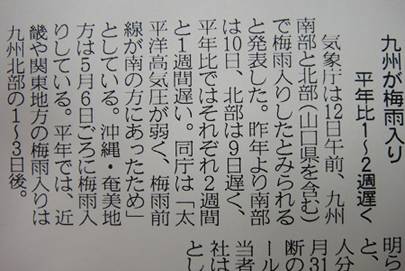 九州が梅雨入り
平年比1~2週遅く
気象庁は12日午前、九州
南部と北部(山口県を含む)
で梅雨入りしたとみられる
と発表した。昨年より南部
は10日、北部は9日遅く、
平年比ではそれぞれ2週間
と1週間遅い。同庁は「太
平洋高気圧が弱く、梅雨前
線が南の方にあったため」
としている。沖縄・奄美地
方は5月6日ごろに梅雨入
りしている。平年では、近
畿や関東地方の梅雨入りは
九州北部の1~3日後。
明ら
と、
人分
月31
断の
ール
当者
社は
とし